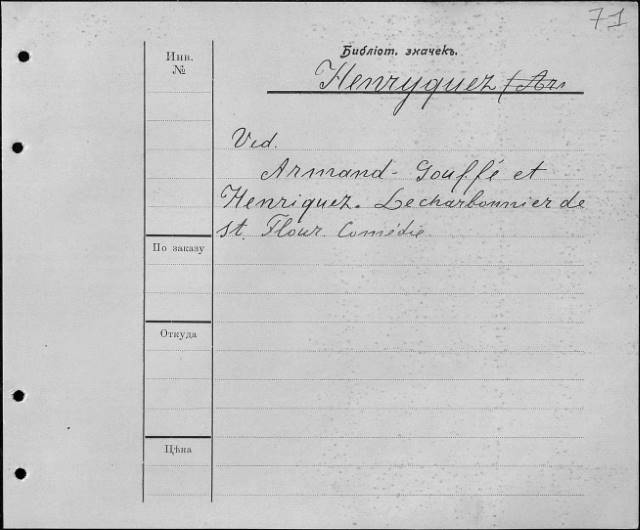 71
Библіот. значекъ.
Henryquez (Ar.
Инв.
№
Ved.
Armand-Gouffé et
Henriquez. Lecharbonnier de
st. Flour. Comédie
По заказу
Откуда
Цѣна